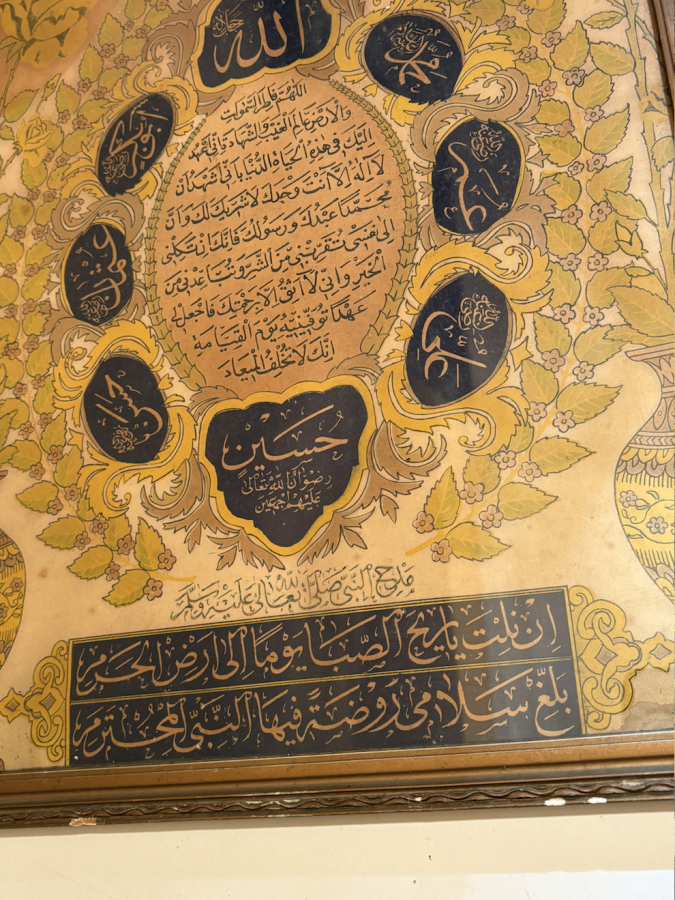 الله جل جلاله
محمد عليه السلام
ابو بكر رضي الله عنه
عمر رضي الله عنه
عثمان رضي الله عنه
علي رضي الله عنه
حسن رضي الله عنه
اللهم فاطر السموات
والارض عالم الغيب والشهادة اني اعهد
اليك في هذه الحياة الدنيا باني اشهد ان
لا اله الا انت وحدك لا شريك لك وان
محمدا عبدك ورسولك فانك ان تكلني
الى نفسي تقربني من الشر وتباعدني من
الخير واني لا اثق الا برحمتك فاجعل لي
عهدا توفينيه يوم القيامة
انك لا تخلف الميعاد
حسين
رضوان الله تعالى
عليهم اجمعين
مدح النبي صلى الله تعالى عليه وسلم
ان نلت يا ريح الصبا يوما الى ارض الحرم
بلغ سلامي روضة فيها النبي المحترم